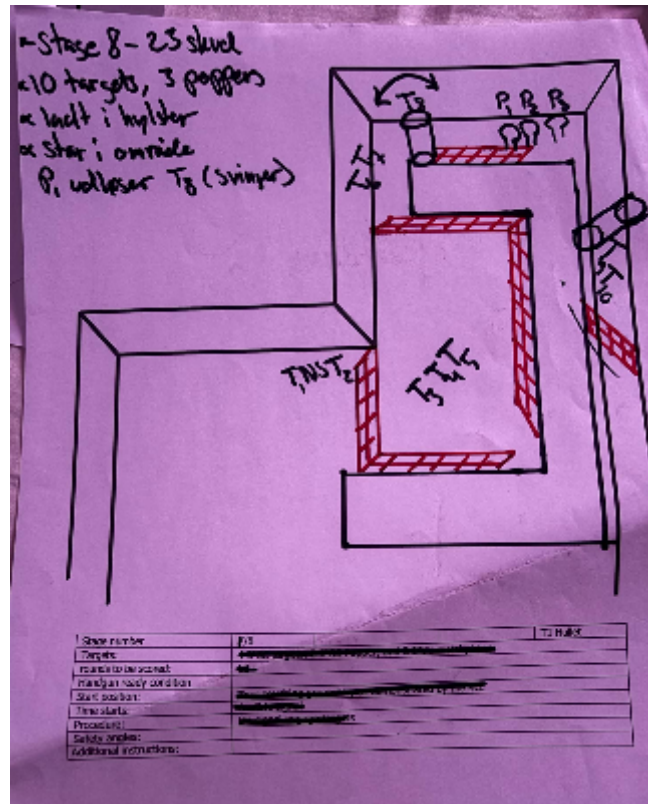 - Stage 8 - 23 skudd
× 10 targets, 3 poppers
× ladt i hylster
× Star i område
P1 utløser T8 (svinger)
T8
P1 P2 P3
T7
T6
T9
T10
T1 NS T2
T3 T4 T5
Stage number
Targets:
rounds to be scored:
Handgun ready condition
Start position:
Time starts:
Procedure:
Safety angles:
Additional instructions: